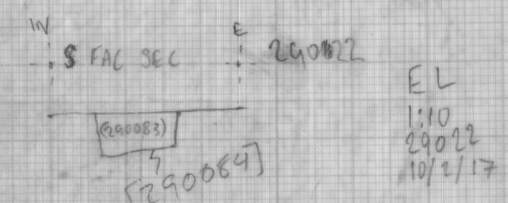 W E
S FAC SEC 290022
(290083)
[290084]
EL
1:10
29022
10/2/17